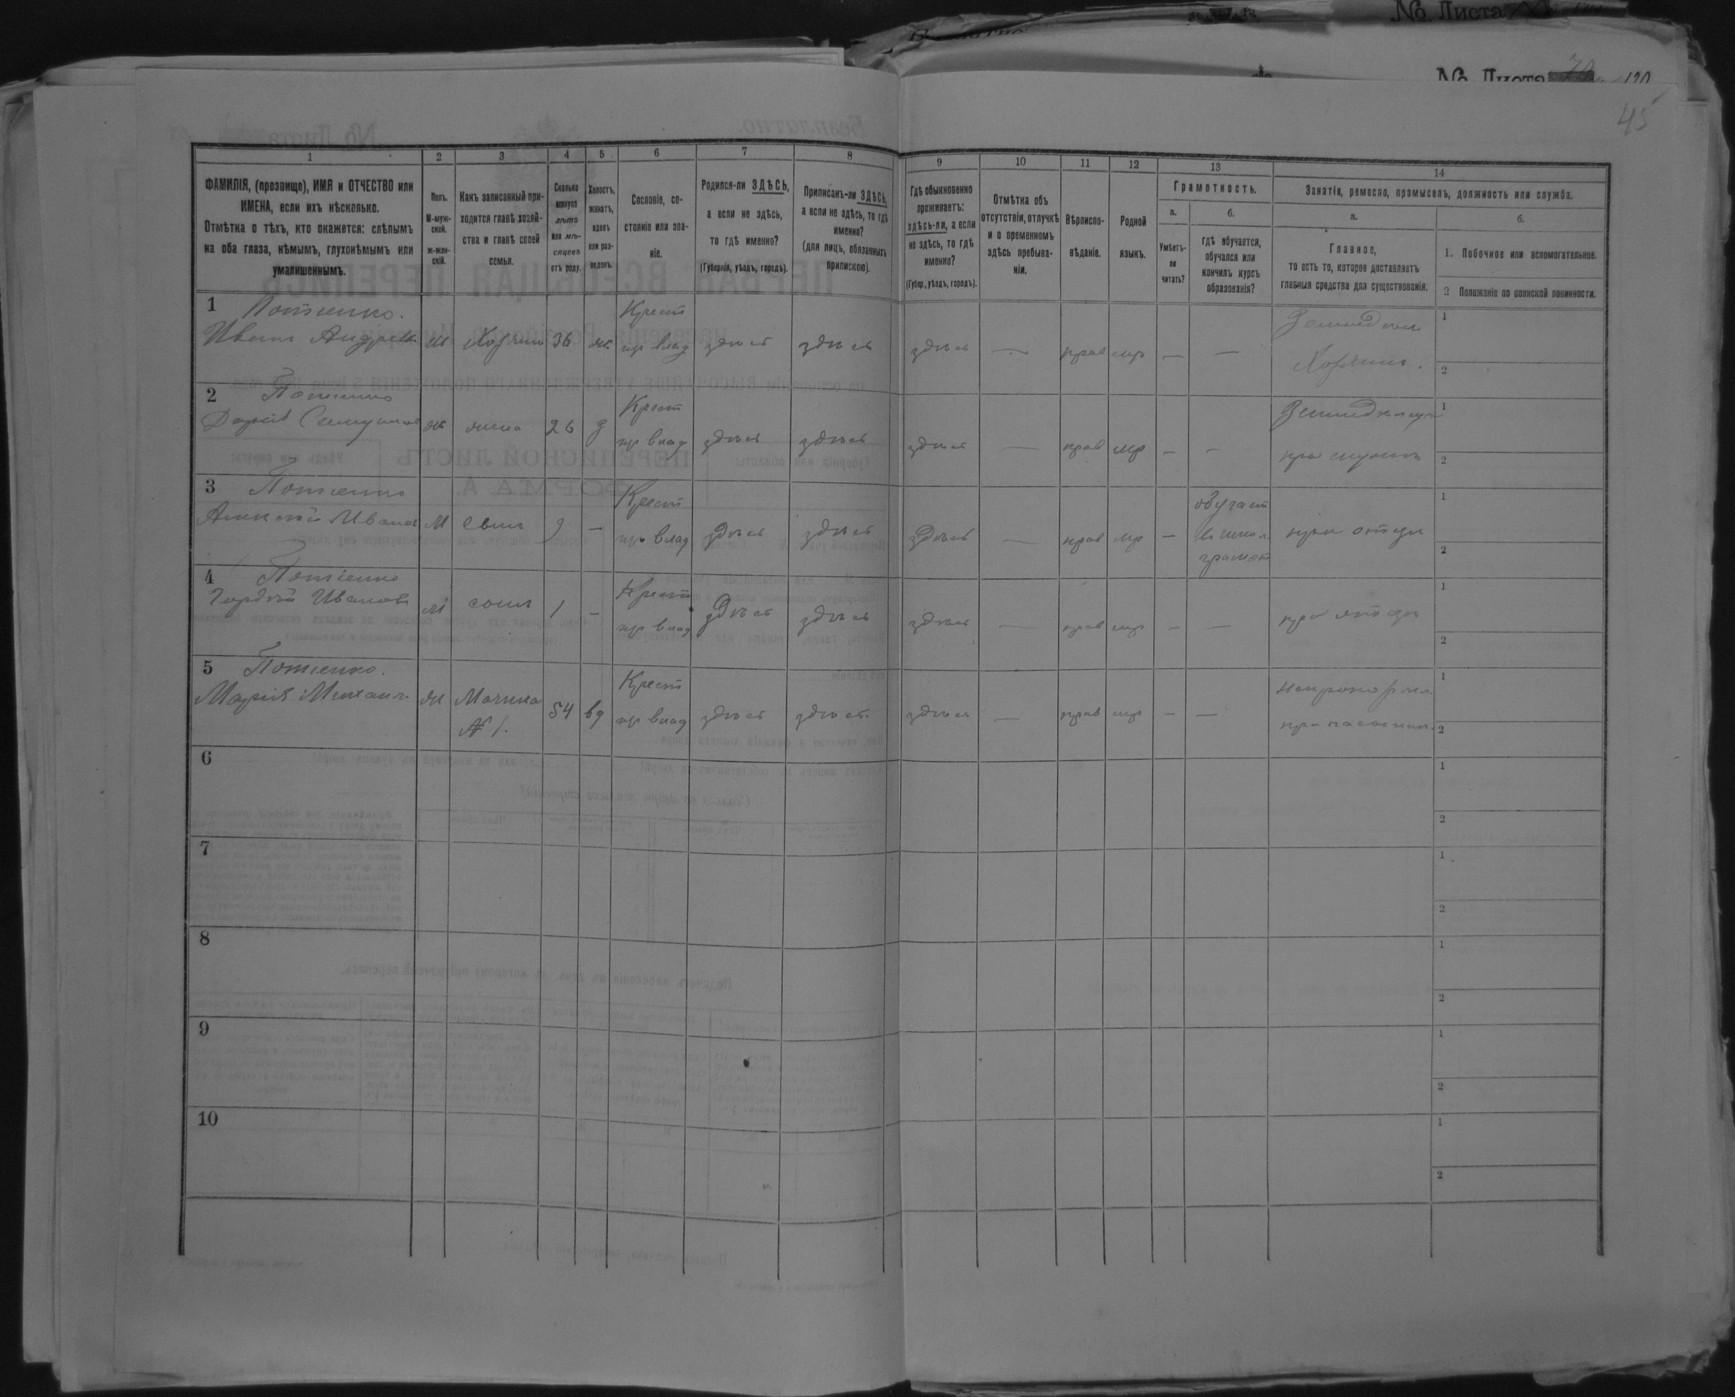 No. Листа
No. Листа
120
45
1 2 3 4 5 6 7 8 9 10 11 12 13 14
ФАМИЛІЯ, (прозвище), ИМЯ и ОТЧЕСТВО или
ИМЕНА, если ихъ нѣсколько.
Отмѣтка о тѣхъ, кто окажется: слѣпымъ
на оба глаза, нѣмымъ, глухонѣмымъ или
умалишеннымъ.
Полъ.
М-муж-
ской.
ж-жен-
скій.
Какъ записанный при-
ходится главѣ хозяй-
ства и главѣ своей
семьи.
Сколько
минуло
лѣтъ
или мѣ-
сяцевъ
отъ роду.
Холостъ,
женатъ,
вдовъ
или раз-
веденъ.
Сословіе, со-
стояніе или зва-
ніе.
Родился-ли ЗДѢСЬ,
а если не здѣсь,
то гдѣ именно?
(Губернія, уѣздъ, городъ).
Приписанъ-ли ЗДѢСЬ,
а если не здѣсь, то гдѣ
именно?
(для лицъ, обязанныхъ
припискою).
Гдѣ обыкновенно
проживаетъ:
здѣсь-ли, а если
не здѣсь, то гдѣ
именно?
(Губер., уѣздъ, городъ).
Отмѣтка объ
отсутствіи, отлучкѣ
и о временномъ
здѣсь пребыва-
ніи.
Вѣроиспо-
вѣданіе.
Родной
языкъ.
Грамотность.
а.
Умѣетъ-
ли
читать?
б.
гдѣ обучается,
обучался или
кончилъ курсъ
образованія?
Занятіе, ремесло, промыселъ, должность или служба.
а.
Главное,
то есть то, которое доставляетъ
главныя средства для существованія.
б.
1. Побочное или вспомогательное.
2 Положеніе по воинской повинности.
1 Потіенко.
Иванъ Андреевъ М Хозяинъ 36 ж Крест здѣсь здѣсь здѣсь — прав мр — —
Хозяинъ.
1
2
2 Потіенко
Дарія ж жена 26 з Крест здѣсь здѣсь здѣсь — прав мр — —
при мужѣ
1
2
3 Потіенко
Алексѣй Иванов М сынъ 9 — Крест здѣсь здѣсь здѣсь — прав мр —
обучает
грамот
при отцѣ
1
2
4 Потіенко
Гордѣй Иванов М сынъ 1 — Крест здѣсь здѣсь здѣсь — прав мр — —
при отцѣ
1
2
5 Потіенко.
Марія Михаил ж 54 вд Крест здѣсь здѣсь здѣсь — прав мр — —
№ 1.
1
2
6
1
2
7
1
2
8
1
2
9
1
2
10
1
2